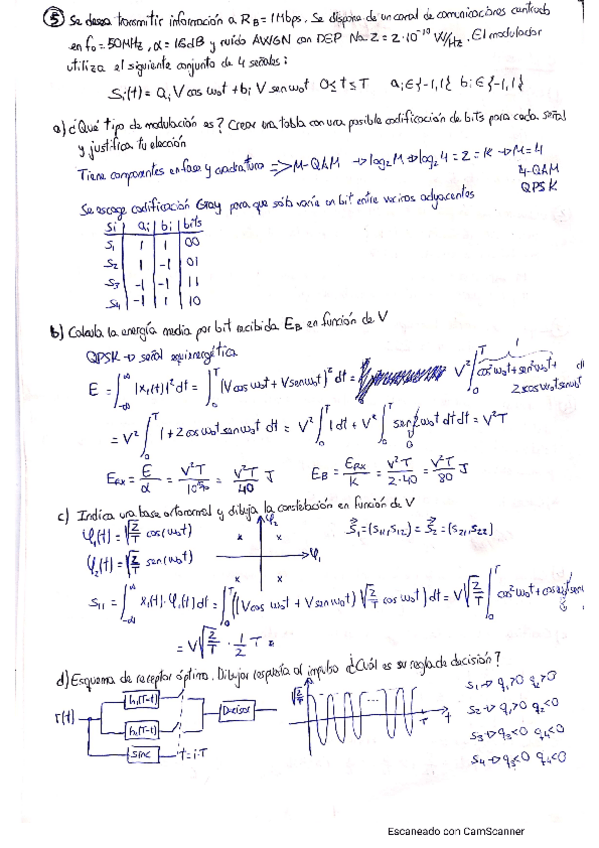 ⑤ Se desea transmitir información a R_B = 1Mbps. Se dispone de un canal de comunicaciones centrado
en f₀ = 50MHz, α = 16dB y ruido AWGN con DEP N₀ = 2 = 2·10⁻¹⁰ W/Hz. El modulador
utiliza el siguiente conjunto de 4 señales:
Sᵢ(t) = aᵢ V cos ω₀t + bᵢ V sen ω₀t 0 ≤ t ≤ T aᵢ ∈ {-1,1} bᵢ ∈ {-1,1}
a) ¿Qué tipo de modulación es? Crear una tabla con una posible codificación de bits para cada señal
y justifica tu elección
Tiene componentes en fase y cuadratura => M-QAM → log₂M → log₂4 = 2 = K → M = 4
4-QAM
QPSK
Se escoge codificación Gray para que solo varíe un bit entre vecinos adyacentes
Si | aᵢ | bᵢ | bits
S₁ | 1 | 1 | 00
S₂ | 1 | -1 | 01
S₃ | -1 | -1 | 11
S₄ | -1 | 1 | 10
b) Calcula la energía media por bit recibida E_B en función de V
QPSK → señal equienergética
E = ∫ |x₁(t)|² dt = ∫₀ᵀ (V cos ω₀t + V sen ω₀t)² dt = V² ∫₀ᵀ cos² ω₀t + sen² ω₀t + 2 cos ω₀t sen ω₀t
= V² ∫₀ᵀ 1 + 2 cos ω₀t sen ω₀t dt = V² ∫₀ᵀ 1 dt + V² ∫₀ᵀ sen 2ω₀t dt = V²T
E_RX = E/α = V²T/40 J E_B = E_RX/K = V²T/2·40 = V²T/80 J
c) Indica una base ortonormal y dibuja la constelación en función de V
φ₁(t) = √(2/T) cos(ω₀t)
φ₂
φ₁
S₁ = (S₁₁, S₁₂) = S₂ = (S₂₁, S₂₂)
φ₂(t) = √(2/T) sen(ω₀t)
S₁₁ = ∫ x₁(t)·φ₁(t) dt = ∫₀ᵀ ((V cos ω₀t + V sen ω₀t) √(2/T) cos ω₀t) dt = V √(2/T) ∫₀ᵀ cos² ω₀t +
= V √(2/T) · 1/2 T
d) Esquema de receptor óptimo. Dibujar respuesta al impulso ¿Cuál es su regla de decisión?
r(t)
h₁(T-t)
h₂(T-t)
Sinc
t = i·T
Decisor
√(2/T)
...
T
t
S₁ → q₁>0 q₂>0
S₂ → q₁>0 q₂<0
S₃ → q₃<0 q₄<0
S₄ → q₃<0 q₄<0
Escaneado con CamScanner